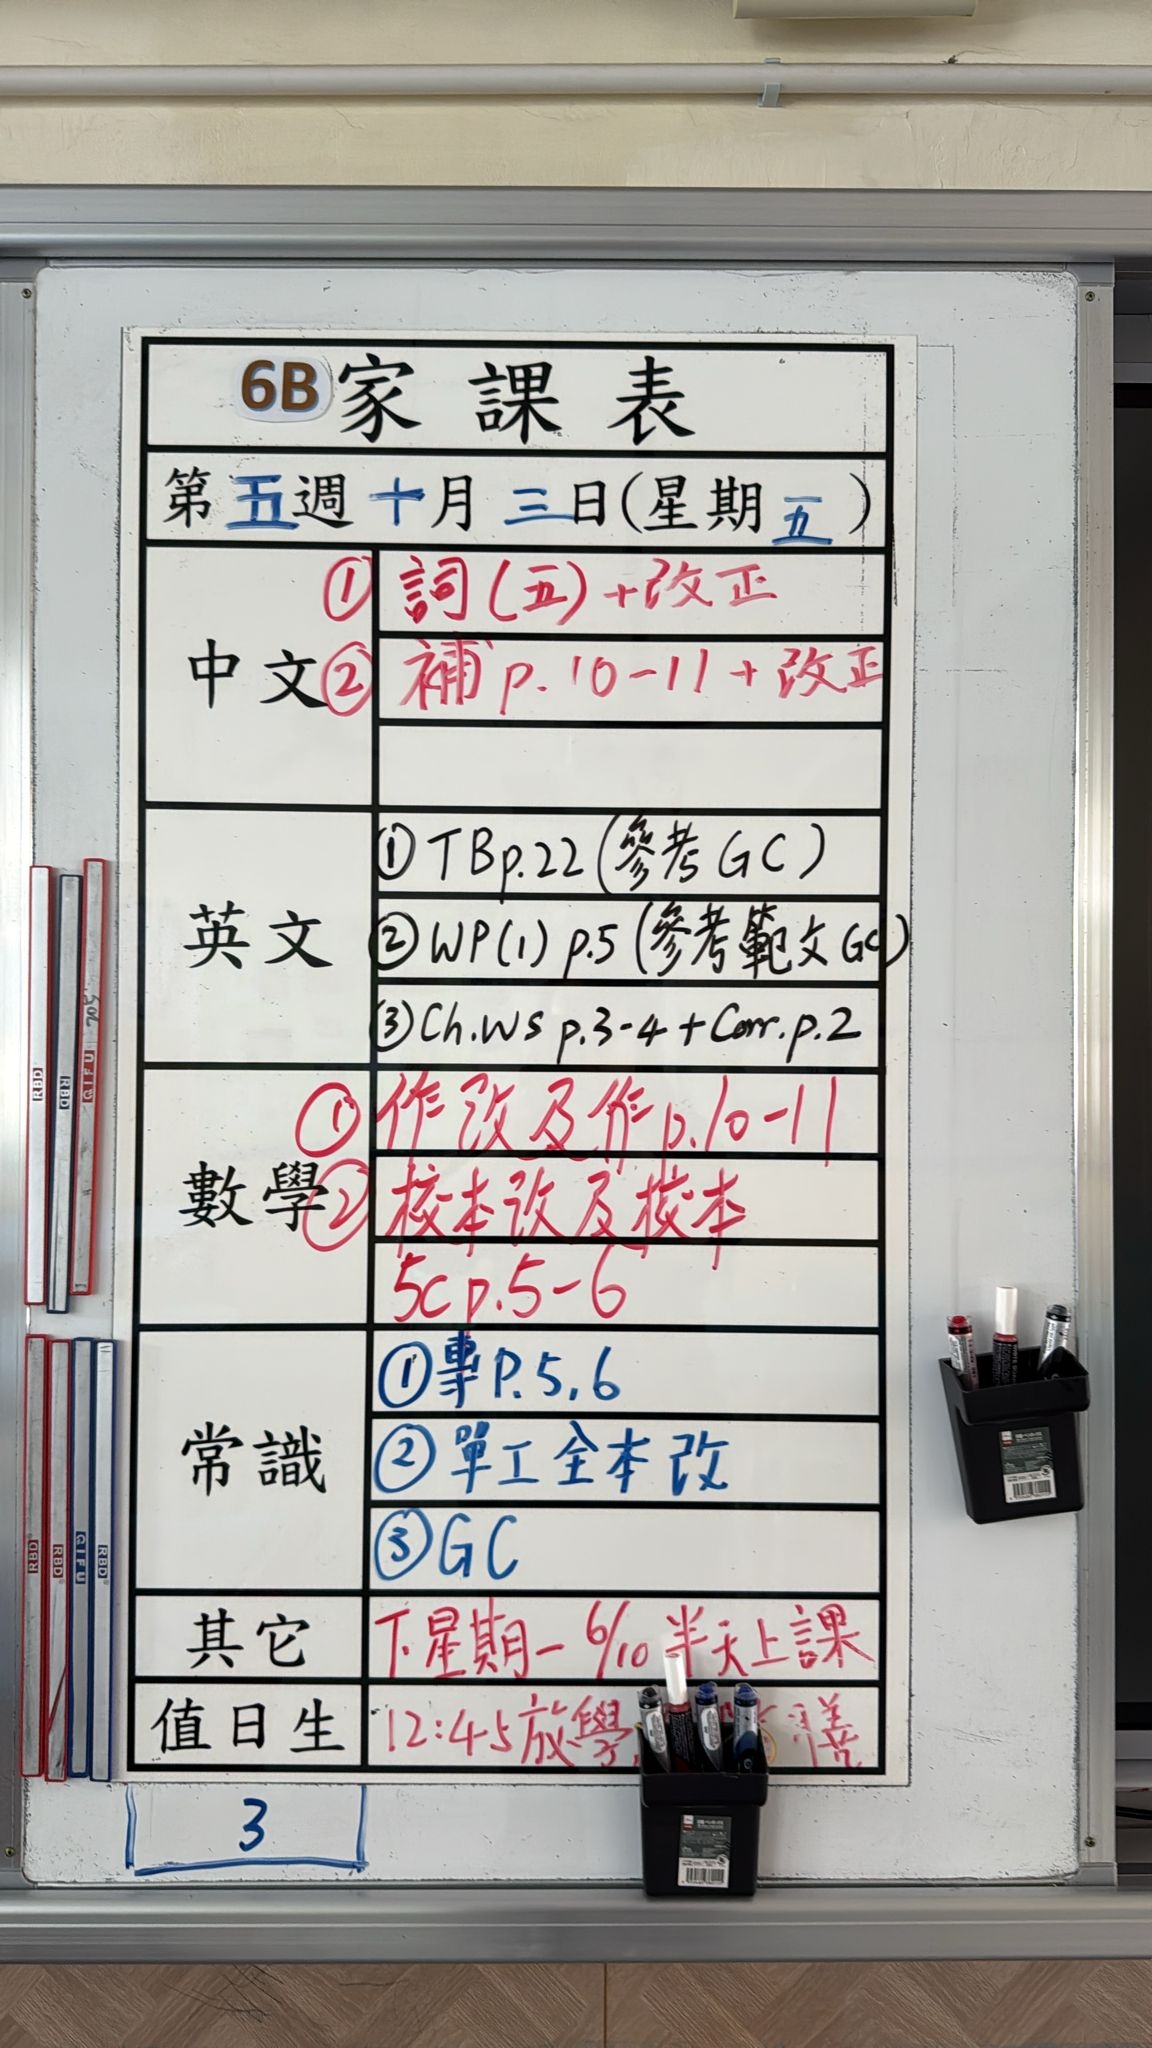 6B家課表
第五週十月三日(星期五)
中文
① 詞(五)+改正
② 補p.10-11+改正
英文
① TBp.22(參考GC)
② WP(1) p.5(參考範文GC)
③ Ch.WS p.3-4+Corr.p.2
數學
① 作改及作p.10-11
② 校本改及校本
5C p.5-6
常識
① 專P.5,6
② 單工全本改
③ GC
其它
下星期一6/10半天上課
值日生
12:45放學
膳
3
RBD
RBD
GIFU
502
RBD
RBD
GIFU
RBD